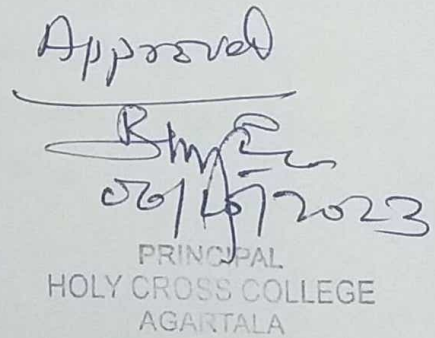 Approved
06/10/2023
PRINCIPAL
HOLY CROSS COLLEGE
AGARTALA